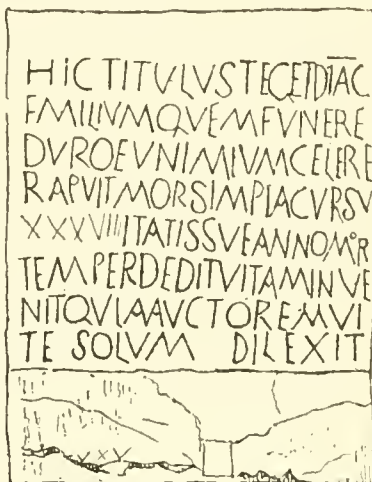 HIC TITVLVS TECET DIAC
EMILIVM QVEM FVNERE
DVRO EVNIMIVM CELERE
RAPVIT MORS IMPIA CVRSV
XXXVIIII ITATIS SVE ANNO MOR
TEM PERDEDIT VITAM INVE
NIT QVIA AVCTOREM VI
TE SOLVM DILEXIT